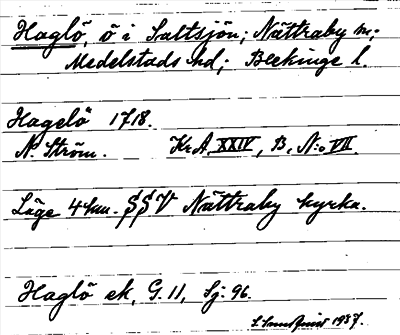 Haglö, ö i Saltsjön; Nättraby sn;
Medelstads hd; Blekinge l.
Hagelö 1718.
N. Ström. Kr.A. XXIV, B, N:o VII.
Läge 4 km. SSV Nättraby kyrka.
Haglö ek, G. 11, Sj. 96.
1937.